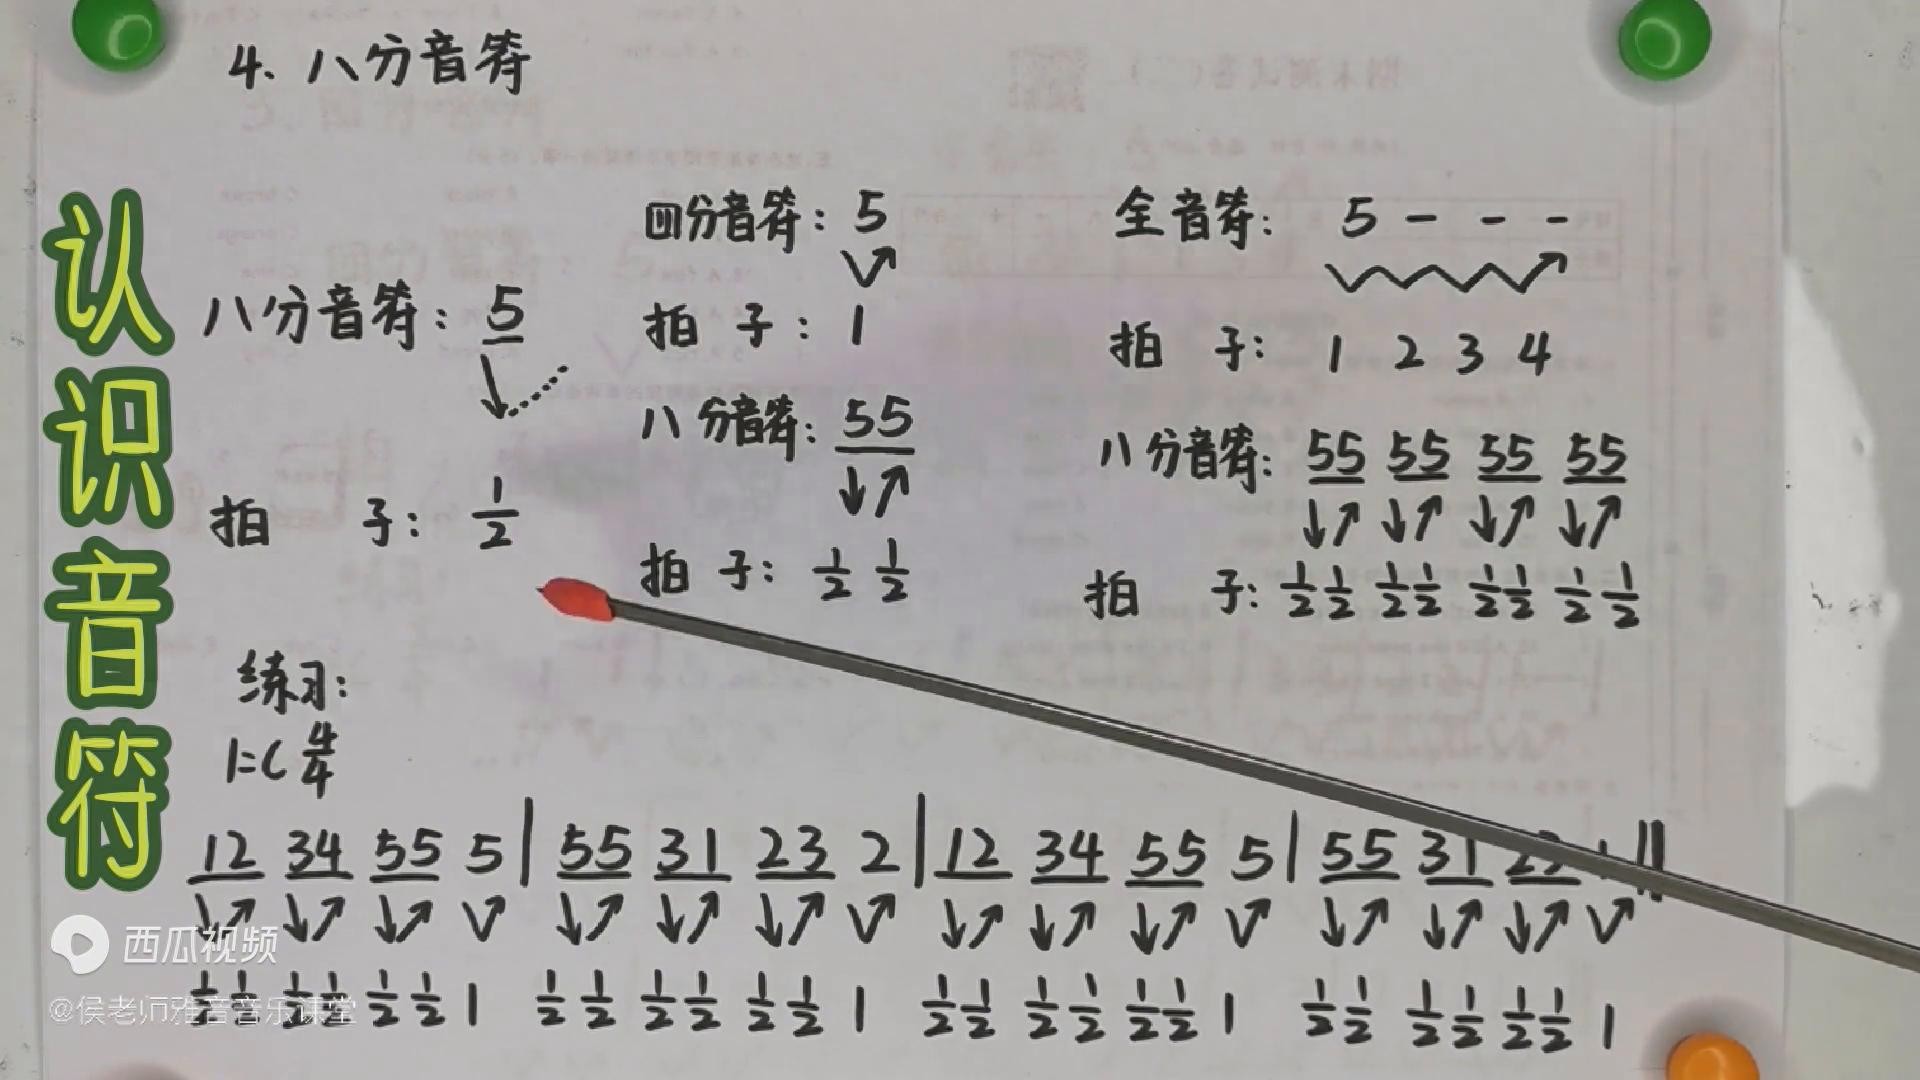 认识音符
4、八分音符
八分音符：5
拍 子： 1/2
四分音符：5
拍 子：1
八分音符：55
拍 子： 1/2 1/2
全音符： 5 - - -
拍 子： 1 2 3 4
八分音符：55 55 55 55
拍 子：1/2 1/2 1/2 1/2 1/2 1/2 1/2 1/2
练习：
1=C 4/4
12 34 55 5 | 55 31 23 2 | 12 34 55 5 | 55 31 ||
1/2 1/2 1/2 1/2 1/2 1/2 1 1/2 1/2 1/2 1/2 1/2 1/2 1 1/2 1/2 1/2 1/2 1/2 1/2 1 1/2 1/2 1/2 1/2 1/2 1/2 1
西瓜视频
@侯老师雅音音乐课堂